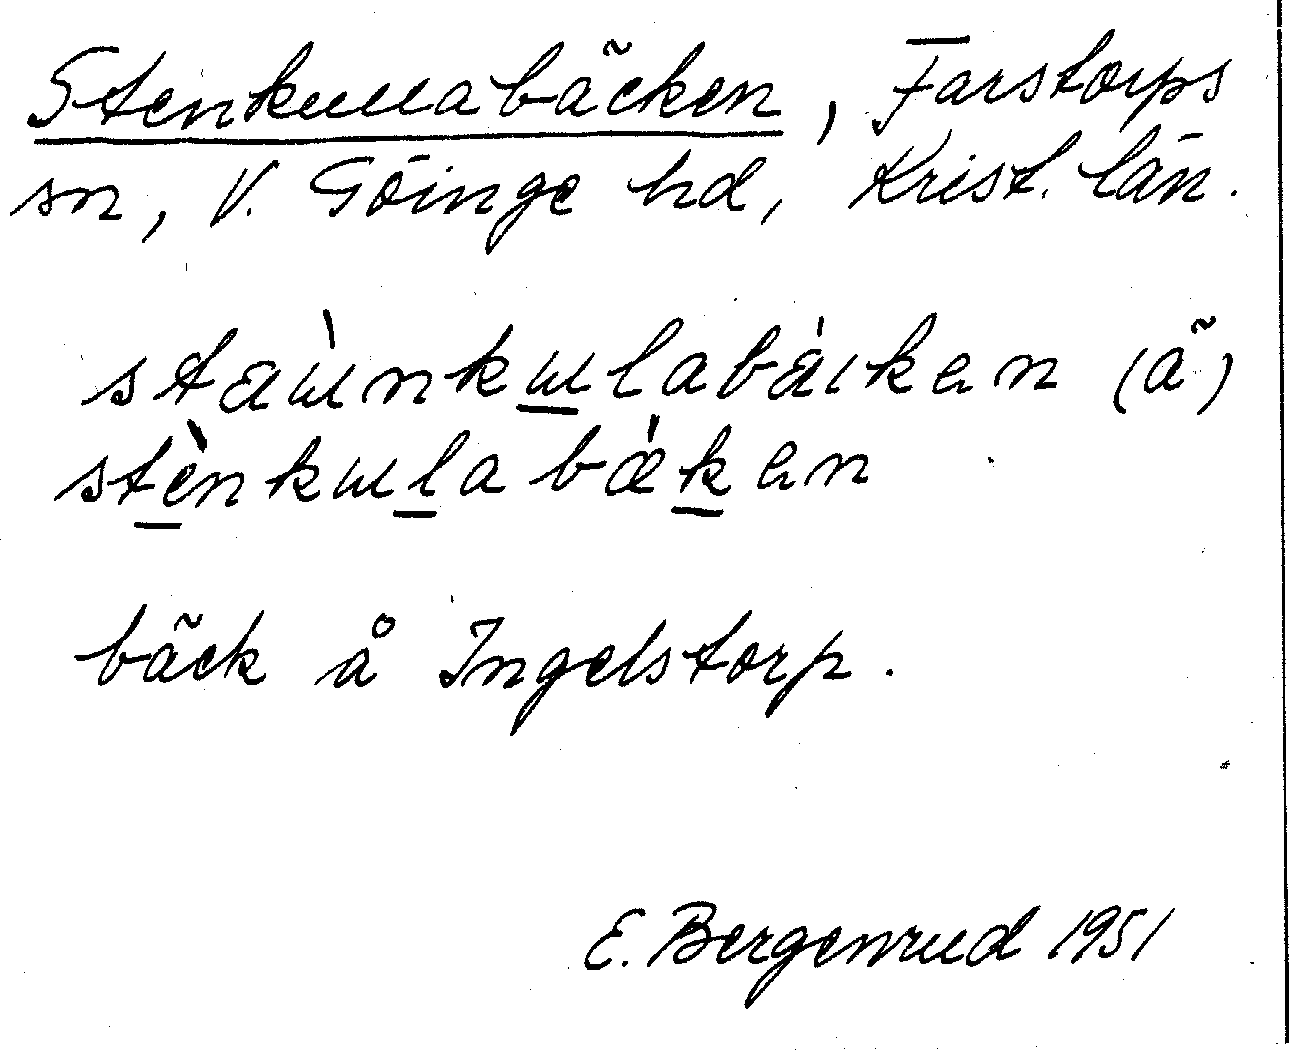 Stenkullabäcken, Farstorps
sn, V. Göinge hd, Krist. län.
staɯ̀nkɯlabáıkən (ã)
stènkɯlabǽkən
bäck å Ingelstorp.
E. Bergenrud 1951